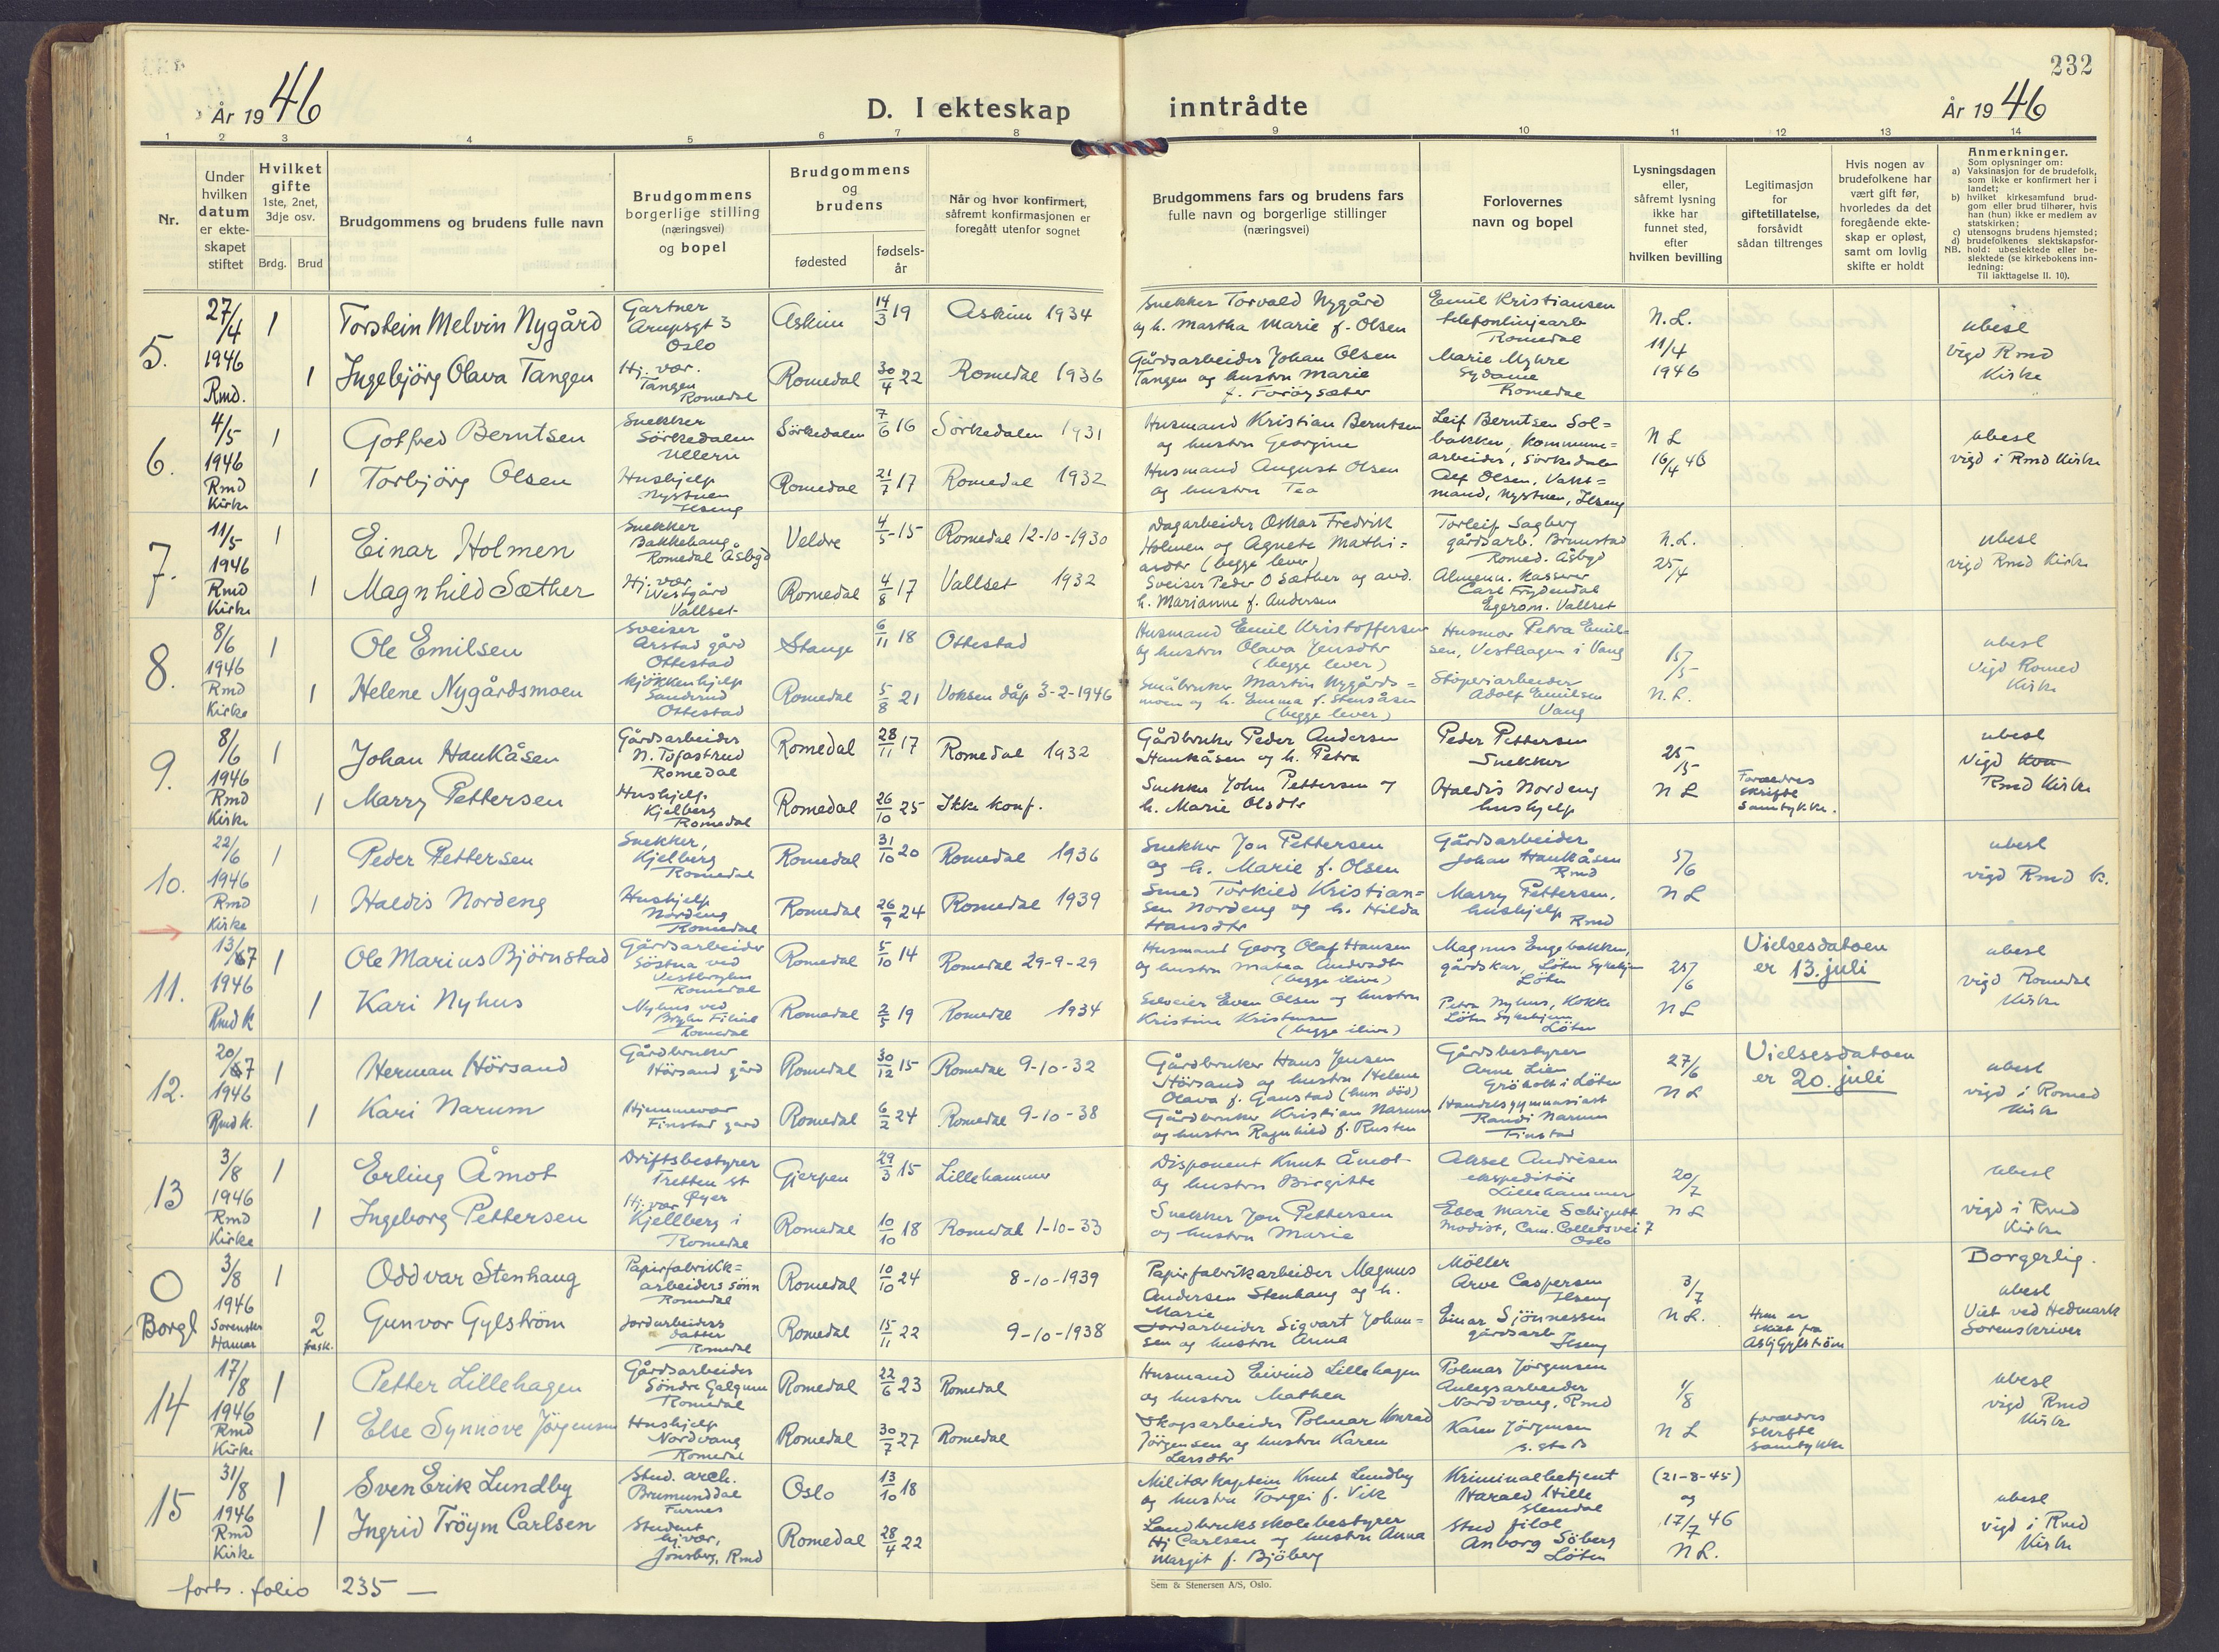 232
År 1946
D. I ekteskap inntrådte
År 1946
1 2 3 4 5 6 7 8 9 10 11 12 13 14
Nr.
Under
hvilken
datum
er ekte-
skapet
stiftet
Hvilket
gifte
1ste, 2net,
3dje osv.
Brdg.
Brud
Brudgommens og brudens fulle navn
Brudgommens
borgerlige stilling
(næringsvei)
og bopel
Brudgommens
og
brudens
fødested
fødsels-
år
Når og hvor konfirmert,
såfremt konfirmasjonen er
foregått utenfor sognet
Brudgommens fars og brudens fars
fulle navn og borgerlige stillinger
(næringsvei)
Forlovernes
navn og bopel
Lysningsdagen
eller,
såfremt lysning
ikke har
funnet sted,
efter
hvilken bevilling
Legitimasjon
for
giftetillatelse,
forsåvidt
sådan tiltrenges
Hvis nogen av
brudefolkene har
vært gift før,
hvorledes da det
foregående ekte-
skap er opløst,
samt om lovlig
skifte er holdt
Anmerkninger.
Som oplysninger om:
a) Vaksinasjon for de brudefolk,
som ikke er konfirmert her i
landet;
b) hvilket kirkesamfund brud-
gom eller brud tilhører, hvis
han (hun) ikke er medlem av
statskirken;
c) utensogns brudens hjemsted;
d) brudefolkenes slektskapsfor-
hold: ubeslektede eller be-
slektede (se kirkebokens inn-
ledning:
NB. Til iakttagelse II. 10).
5.
27/4
1946
Rmd.
1
Torstein Melvin Nygård
Gartner
Arupsgt 3
Oslo
Askim
14/3 19
Askim 1934
Snekker Torvald Nygård
og h. Martha Marie f. Olsen
Emil Kristiansen
telefonlinjearb
Romedal
N.L.
11/4
1946
ubesl
vigd Rmd
Kirke
1
Ingebjörg Olava Tangen
Hj. vær.
Tangen
Romedal
Romedal
30/4 22
Romedal 1936
Gårdsarbeider Johan Olsen
Tangen og hustru Marie
Marie Myhre
Sydame
Romedal
6.
4/5
1946
Rmd
Kirke
1
Gotfred Berntsen
Snekker
Sörkedalen
Ullern
Sörkedalen
7/6 16
Sörkedalen 1931
Husmand Kristian Berntsen
og hustru Georgine
Leif Berntsen Sol=
bakken, kommune=
arbeider, Sörkedalen
N L
16/4 46
ubesl
vigd i Rmd Kirke
1
Torbjörg Olsen
Hushjelp
Nystuen
Ilseng
Romedal
21/7 17
Romedal 1932
Husmand August Olsen
og hustru Tea
Alf Olsen, Vakt=
mand, Nystuen, Ilseng
7.
11/5
1946
Rmd
Kirke
1
Einar Holmen
Snekker
Bakkehaug
Romedal Åsbygd
Veldre
4/5 15
Romedal 12-10-1930
Dagarbeider Oskar Fredrik
Holmen og Agnete Mathi=
asdtr (begge lever)
Torleif Sagberg
gårdsarb. Brunstad
Romed. Åsbygd
N.L.
25/4
ubesl
vigd Rmd Kirke
1
Magnhild Sæther
Hj. vær,
Westgård
Vallset
Romedal
4/8 17
Vallset 1932
Sveiser Peder O Sæther og avd.
h. Marianne f. Andersen
Almenn. kasserer
Carl Frydendal
Vallset
8.
8/6
1946
Rmd
Kirke
1
Ole Emilsen
Sveiser
Arstad gård
Ottestad
Stange
6/11 18
Ottestad
Husmand Emil Kristoffersen
og hustru Olava Jensdtr
(begge lever)
Husmor Petra Emil=
sen, Vesthagen i Vang
15/5
N.L.
ubesl
vigd Romed
Kirke
1
Helene Nygårdsmoen
kjökkenhjelp
Sanderud
Ottestad
Romedal
5/8 21
Voksen dåp 3-2-1946
Småbruker Martin Nygårds=
moen og h. Emma f. Stensåsen
(begge lever)
Stöperiarbeider
Adolf Emilsen
Vang
9.
8/6
1946
Rmd
Kirke
1
Johan Haukåsen
Gårdsarbeider
N. Tofastrud
Romedal
Romedal
28/11 17
Romedal 1932
Gårdbruker Peder Andersen
Haukåsen og h. Petra
Peder Pettersen
Snekker
25/5
N L
ubesl
vigd
Rmd Kirke
1
Marry Pettersen
Hushjelp
Kjelberg
Romedal
Romedal
26/10 25
Ikke konf.
Snekker John Pettersen og
h. Marie Olsdtr
Haldis Nordeng
hushjelp
Foreldres
skriftl
Samtykke.
10.
22/6
1946
Rmd
Kirke
1
Peder Pettersen
Snekker,
Kjelberg
Romedal
Romedal
31/10 20
Romedal 1936
Snekker Jon Pettersen
og h. Marie f. Olsen
Gårdsarbeider
Johan Haukåsen
Rmd
5/6
N L
ubesl
vigd Rmd k.
1
Haldis Nordeng
Hushjelp
Nordeng
Romedal
Romedal
26/9 24
Romedal 1939
Smed Torkild Kristian=
sen Nordeng og h. Hilda
Hansdtr
Marry Pettersen,
hushjelp
Rmd
11.
13/7
1946
Rmd k
1
Ole Marius Björnstad
Gårdsarbeider
Söstua ved
Romedal
Romedal
5/10 14
Romedal 29-9-29
Husmand Georg Olaf Hansen
og hustru Mathea Andersdtr
(begge ilive)
Magnus Engebakken,
gårdskar, Löten Sykehjem
Löten
25/6
N L
Vielsesdatoen
er 13. juli
ubesl
vigd Romedal
Kirke
1
Kari Nyhus
Nyhus ved
Bryhn Filial
Romedal
Romedal
2/5 19
Romedal 1934
Selveier Even Olsen og hustru
Kristine Kristensen
(begge ilive)
Petra Nyhus, Kokke
Löten Sykehjem
Löten
12.
20/7
1946
Rmd k.
1
Herman Hörsand
Gårdbruker
Hörsand gård
Romedal
30/12 15
Romedal 9-10-32
Gårdbruker Hans Jensen
Hörsand og hustru Helene
Olava f. Gaustad (hun död)
Gårdsbestyrer
Arne Lien
Gröholt i Löten
27/6
N L
Vielsesdatoen
er 20. juli
ubesl
vigd i Romed
Kirke
1
Kari Narum
Hjemmevær
Finstad gård
Romedal
6/2 24
Romedal 9-10-38
Gårdbruker Kristian Narum
og hustru Ragnhild f. Rusten
Handelsgymnasiast
Randi Narum
Finstad
13
3/8
1946
Rmd
Kirke
1
Erling Åmot
Driftsbestyrer
Tretten st
Øyer
Gjerpen
29/3 15
Lillehammer
Disponent Knut Åmot
og hustru Birgitte
Aksel Andrésen
ekspeditör
Lillehammer
20/7
N L
ubesl
vigd i Rmd
Kirke
1
Ingeborg Pettersen
Hj. vær
Kjellberg i
Romedal
Romedal
10/10 18
Romedal 1-10-33
Snekker Jon Pettersen
og hustru Marie
Ebba Marie
Modist, Cam. Colletsvei 7
Oslo
0
Borgl
3/8
1946
Sorenskr
Hamar
1
Oddvar Stenhaug
Papirfabrikk=
arbeiders sönn
Romedal
Romedal
10/10 24
8-10-1939
Papirfabrikarbeider Magnus
Andersen Stenhaug og h.
Marie
Möller
Arve Caspersen
Ilseng
3/7
N L.
Borgerlig.
ubesl
Viet ved Hedmark
Sorenskriver
2
frask.
Gunvor Gylström
Jordarbeiders
datter
Romedal
Romedal
15/11 22
9-10-1938
Jordarbeider Sigvart Johan=
sen og hustru Anna
Einar Sjönnessen
gårdsarb
Ilseng
Hun er
skilt fra
Asbj Gylström
14
17/8
1946
Rmd
Kirke
1
Petter Lillehagen
Gårdsarbeider
Söndre Galgum
Romedal
Romedal
22/6 23
Romedal
Husmand Eivind Lillehagen
og hustru Mathea
Polmar Jörgensen
Anlegsarbeider
Nordvang, Rmd
1/8
N L
ubesl
vigd Rmd
Kirke
1
Else Synnöve Jörgensen
Hushjelp
Nordvang
Romedal
Romedal
30/7 27
Romedal
Skogsarbeider Polmar Konrad
Jörgensen og hustru Karen
Larsdtr
Karen Jörgensen
s. sted
foreldres
Skriftl
Samtykke
15
31/8
1946
Rmd
Kirke
1
Sven Erik Lundby
Stud. arch.
Brumunddal
Furnes
Oslo
13/10 18
Militærkaptein Knut Lundby
og hustru Torgei f. Vik
Kriminalbetjent
Harald Hille
Slemdal
(21-8-45)
og
17/7 46
N L.
ubesl
vigd i Rmd
Kirke
1
Ingrid Tröym Carlsen
Student
hj.vær,
Jönsberg, Rmd
Romedal
28/4 22
Landbruksskolebestyrer
Hj Carlsen og hustru Anna
Margit f. Bjöberg
Stud filol
Anborg Söberg
Löten
forts. folio 235 —
Sem & Stenersen A/S, Oslo.